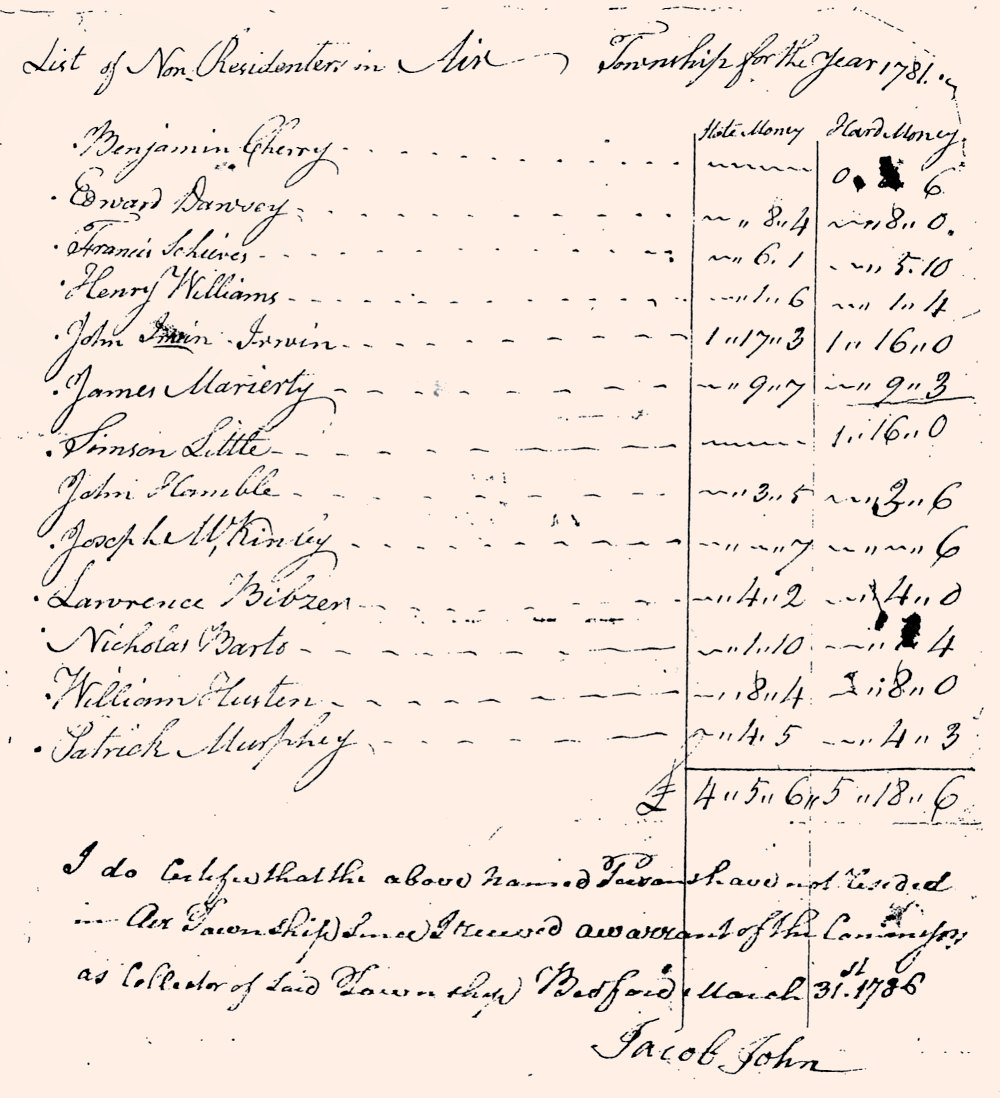 List of Non Residenters in Air Township for the Year 1781.
State Money Hard Money
Benjamin Cherry 0 6
Edward Dawvey 8 " 4 " 8 " 0
Francis Schives " 6 . 1 " 5 . 10
Henry Williams " 1 " 6 " 1 " 4
John Irwin 1 " 17 " 3 1 " 16 " 0
James Marierty " 9 " 7 " 9 " 3
Simson Little 1 " 16 " 0
John Hamble " 3 " 5 " 2 " 6
Joseph McKinley " " 7 " " 6
Lawrence Bibzer " 4 " 2 " 4 " 0
Nicholas Barto " 1 " 10 " 4
William Husten " 8 " 4 " 8 " 0
Patrick Murphey " 4 . 5 " 4 " 3
£ 4 " 5 " 6 " 5 " 18 " 6
I do Certify that the above Named Persons have not resided
in Air Township Since I received a warrant of the
as Collector of Said Township Bedford March 31st. 1786
Jacob John